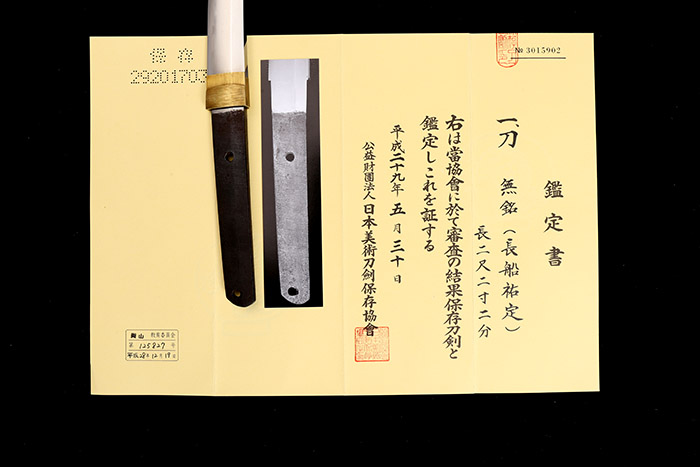 № 3015902
鑑定書
一、刀 無銘（長船祐定）
長二尺二寸二分
右は當協會に於て審査の結果保存刀剣と
鑑定しこれを証する
平成二十九年 五月 三十日
公益財團法人 日本美術刀劍保存協會
保存
29201703
岡山 教育委員会
第 125827 号
平成28年12月19日